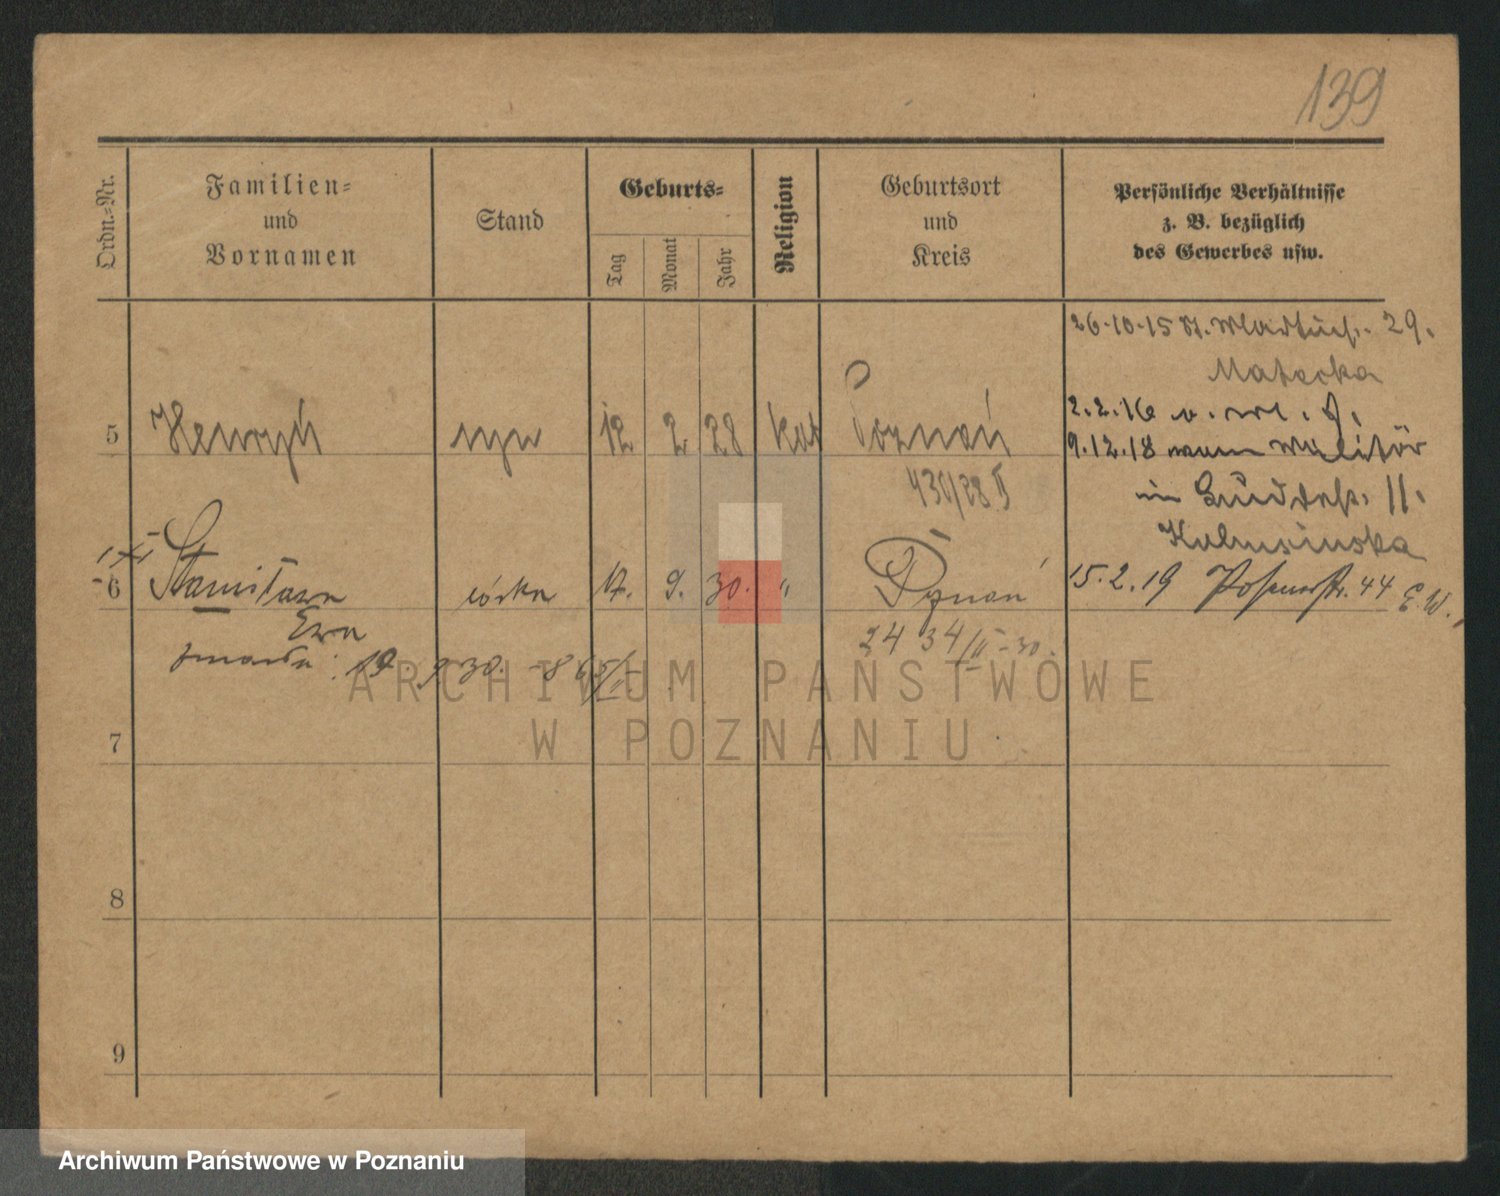 139
Ordn.=Nr.
Familien=
und
Vornamen
Stand
Geburts=
Tag
Monat
Jahr
Religion
Geburtsort
und
Kreis
Persönliche Verhältnisse
z. B. bezüglich
des Gewerbes usw.
5 Henryk syn 12 2 28 kat Poznań
6 Stanisława córka 17. 9. 30. " Poznań
Ewa
zmarła 19. 9 30.
2434/II-30.
7
8
9
26-10-15 29.
Matecka
2.2.16 v.
9.12.18 Militär
11.
15.2.19 Posenerstr. 44 E.W.
ARCHIWUM PAŃSTWOWE
W POZNANIU
Archiwum Państwowe w Poznaniu